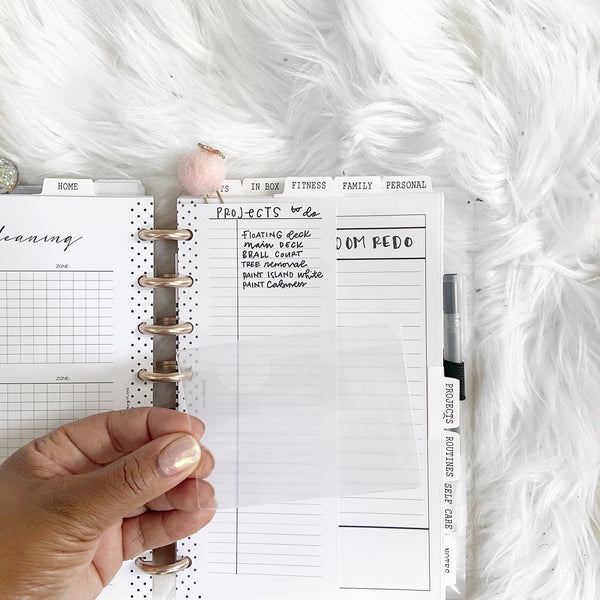 HOME
IN BOX
FITNESS
FAMILY
PERSONAL
eaning
ZONE:
ZONE:
PROJECTS to do
FLOATING deck
main DECK
BBALL COURT
TREE removal
PAINT ISLAND White
PAINT Cabinets
OM REDO
PROJECTS
ROUTINES
SELF CARE
NOTES